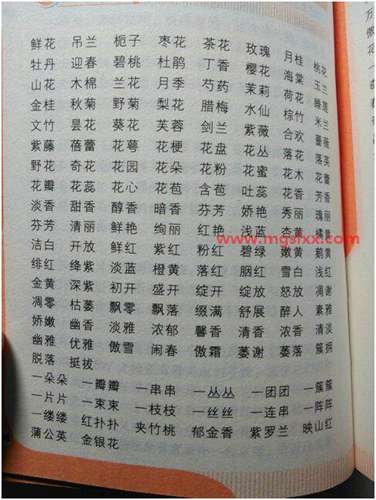 鲜花 吊兰 栀子 枣花 茶花 玫瑰 月桂 桃花
牡丹 迎春 碧桃 杜鹃 丁香 樱花 海棠 玉兰
山花 木棉 兰花 月季 芍药 茉莉 荷花 睡莲
金桂 秋菊 野菊 梨花 腊梅 水仙 棕竹 米兰
文竹 昙花 葵花 芙蓉 剑兰 紫薇 合欢 蔷薇
紫藤 蓓蕾 花萼 花梗 花盘 花丛 落花 落英
野花 奇花 花园 花朵 花粉 花蜜 花木 花蕾
花瓣 花蕊 花心 花苞 含苞 吐蕊 花香 芳香
淡香 甜香 醇香 暗香 芬芳 娇艳 秀丽 瑰丽
芬芳 清丽 鲜艳 绚丽 红艳 浅蓝 杏黄 橘黄
洁白 开放 鲜红 紫红 粉红 碧绿 嫩黄 鹅黄
绯红 绛紫 淡蓝 橙黄 落红 胭红 雪白 浅红
金黄 深紫 初开 盛开 绽开 绽放 怒放 凋谢
凋零 枯萎 飘零 飘落 缀满 舒展 醉人 素雅
娇嫩 幽香 淡雅 浓郁 馨香 清香 浓香 清淡
幽雅 优雅 傲雪 闹春 傲霜 萎谢 萎落 簇拥
脱落 挺拔
一朵朵 一瓣瓣 一串串 一丛丛 一团团 一簇簇
一片片 一束束 一枝枝 一丝丝 一连串 一阵阵
一缕缕 红扑扑 夹竹桃 郁金香 紫罗兰 映山红
蒲公英 金银花
www.mgsfxx.com